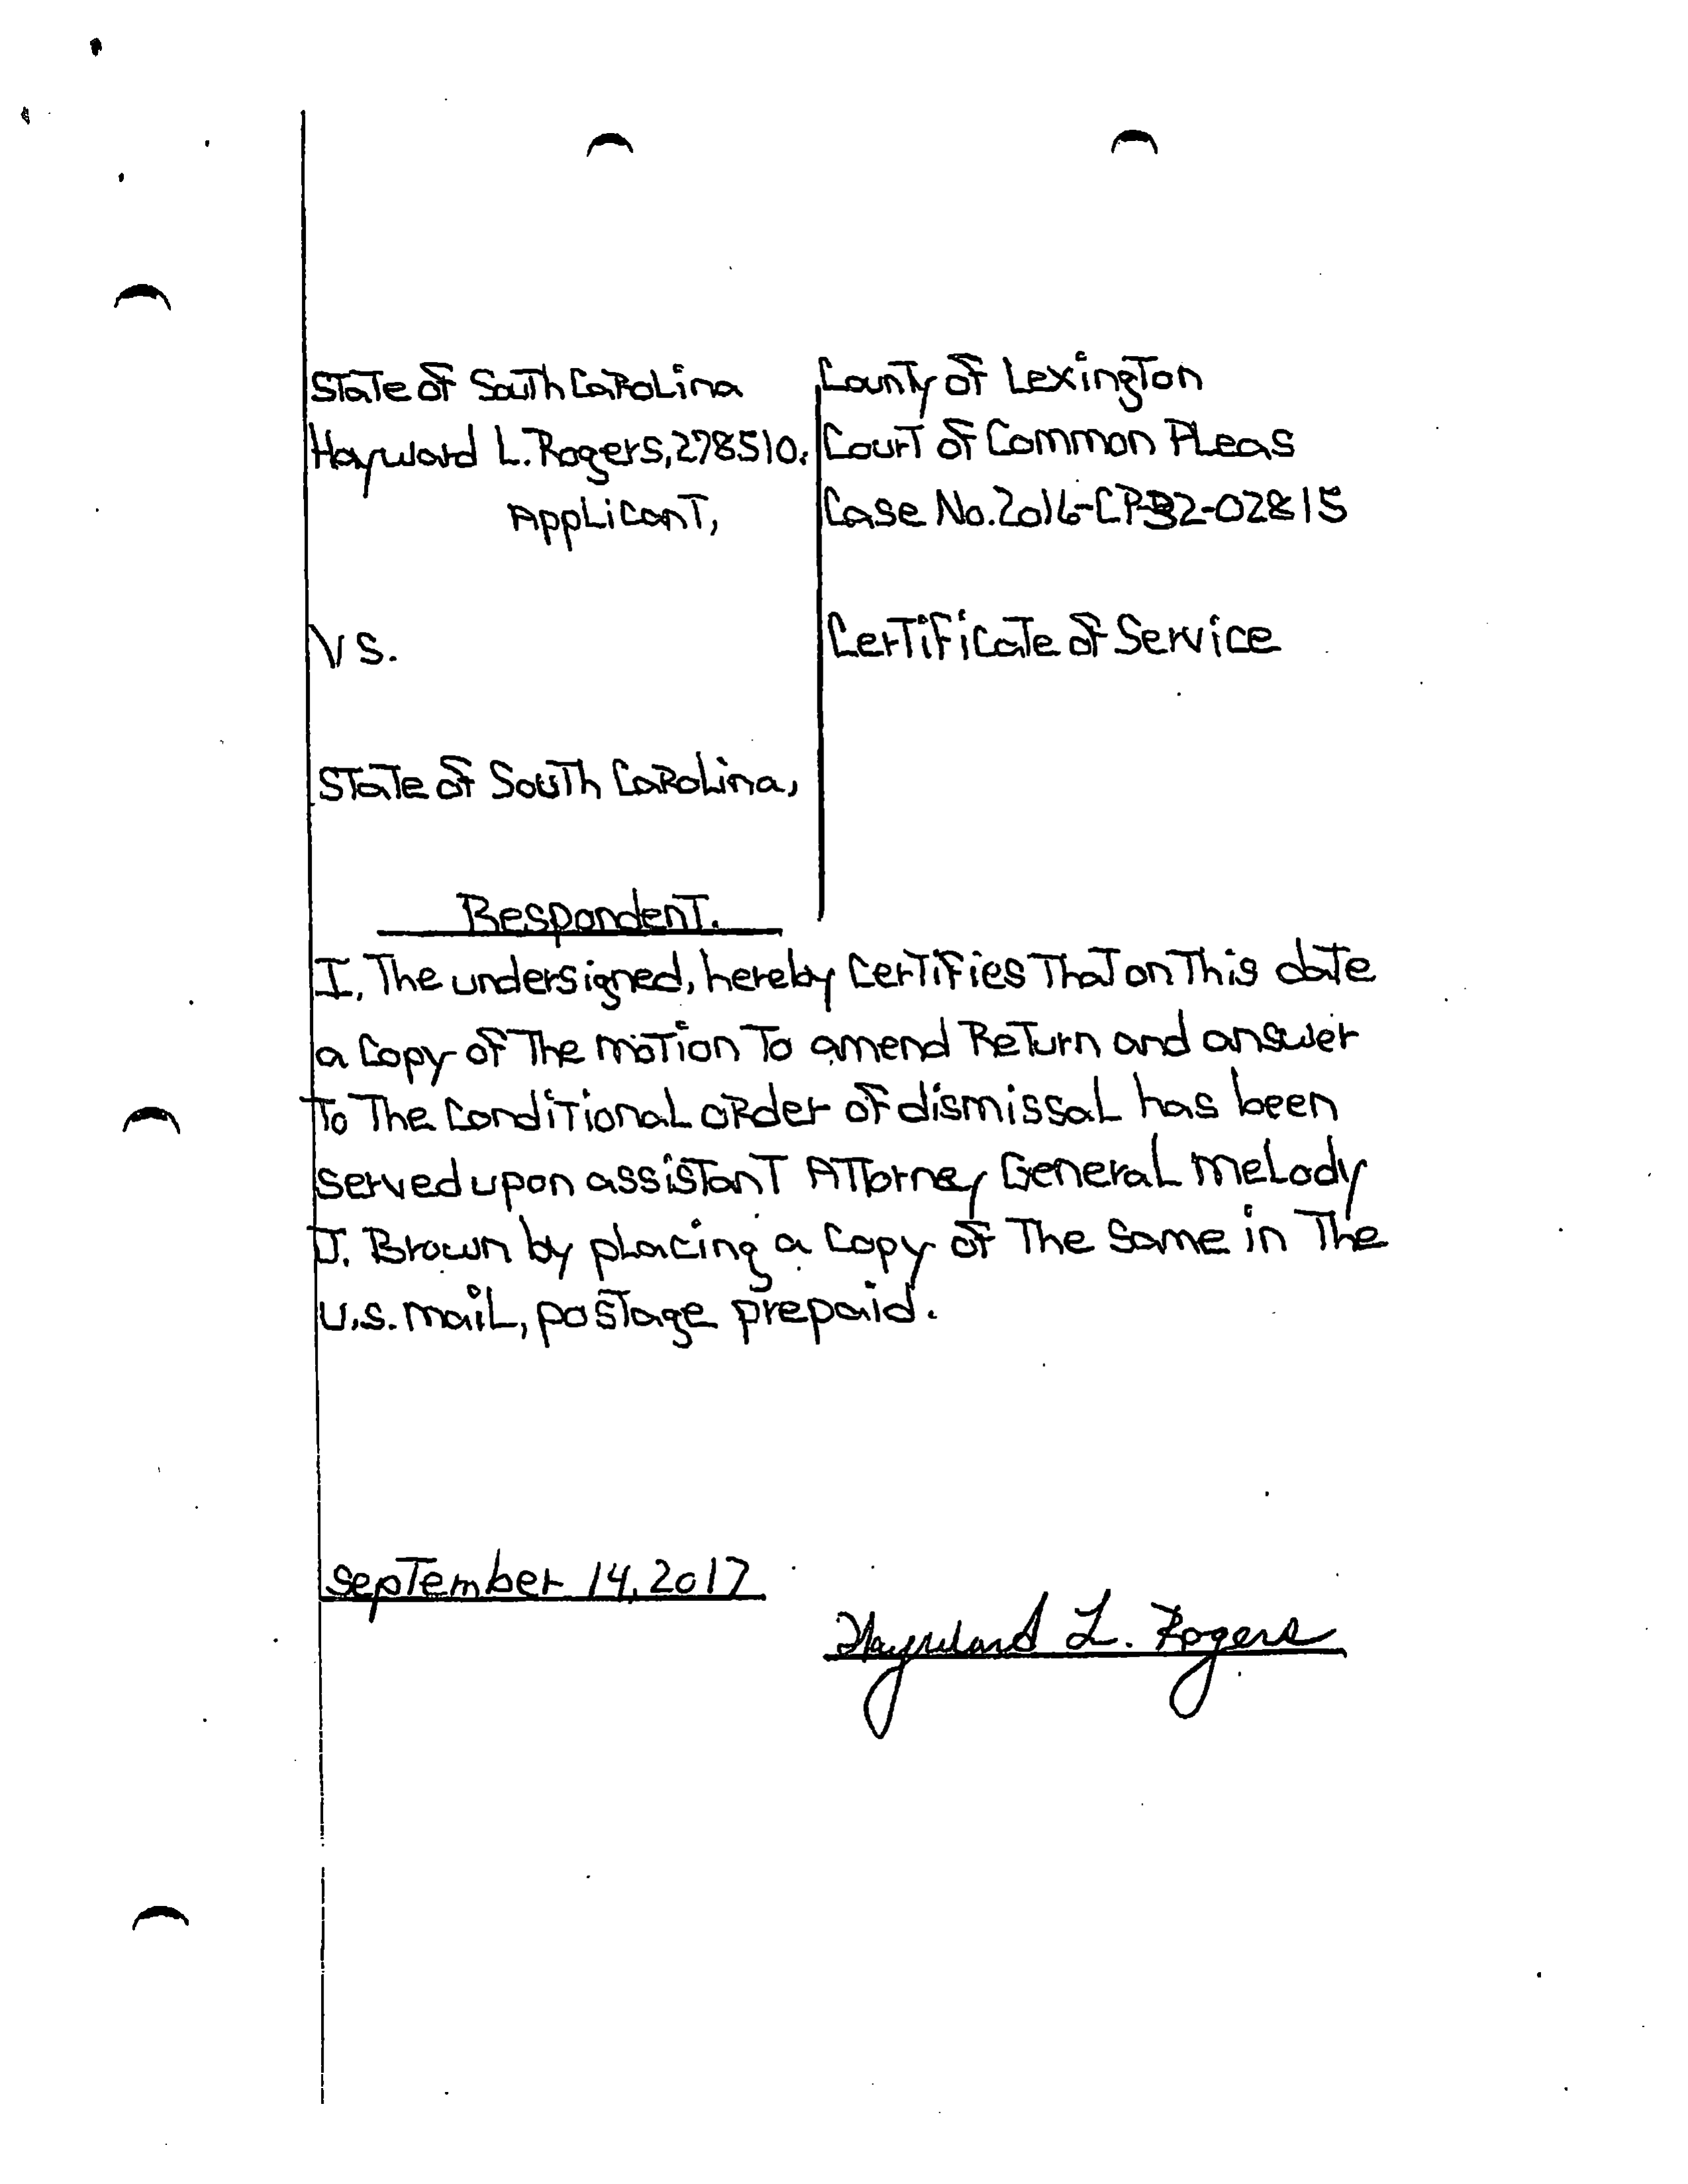 State of South Carolina
Hayward L. Rogers, 278510.
Applicant,
vs.
State of South Carolina,
Respondent.
County of Lexington
Court of Common Pleas
Case No. 2016-CP-32-02815
Certificate of Service
I, The undersigned, hereby Certifies That on This date
a Copy of The motion To amend Return and answer
To The Conditional order of dismissal has been
served upon assistant Attorney General Melody
J. Brown by placing a Copy of The Same in The
U.S. mail, postage prepaid.
September 14, 2017
Hayward L. Rogers